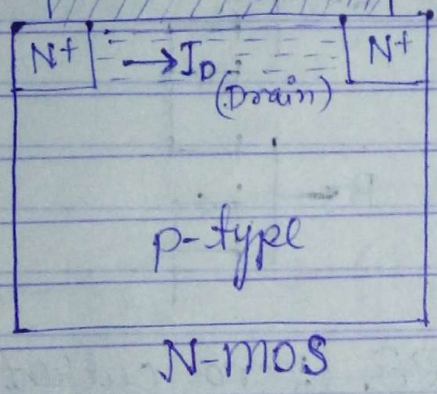 N+ → I_D N+
(Drain)
p-type
N-MOS